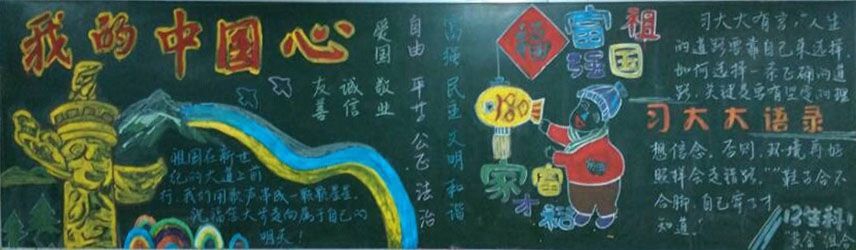 我的中国心
祖国在新世
纪的大道上前
行,我们用歌声串成一颗颗星星,
祝福您大步走向属于自己的
明天!
富强 民主 文明 和谐
自由 平等 公正 法治
爱国 敬业
诚信
友善
福
富强
祖国
家富
才
习大大有言,“人生
的道路要靠自己来选择,
如何选择一条正确的道
路,关键是要有坚定的理
习大大语录
想信念,否则,环境再好
照样会走错路。”“鞋子合不
合脚,自己穿了才
知道”